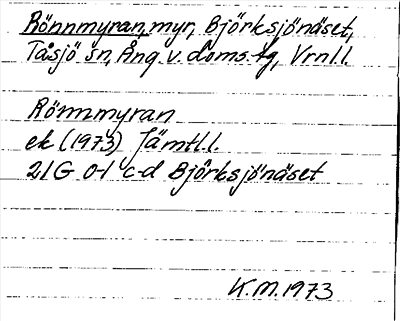 Rönnmyran, myr, Björksjönäset,
Tåsjö sn, Ång. v. doms. tg, Vrnl.l.
Rönnmyran
ek (1973) Jämtl.l.
21G 0-1 c-d Björksjönäset
K.M. 1973